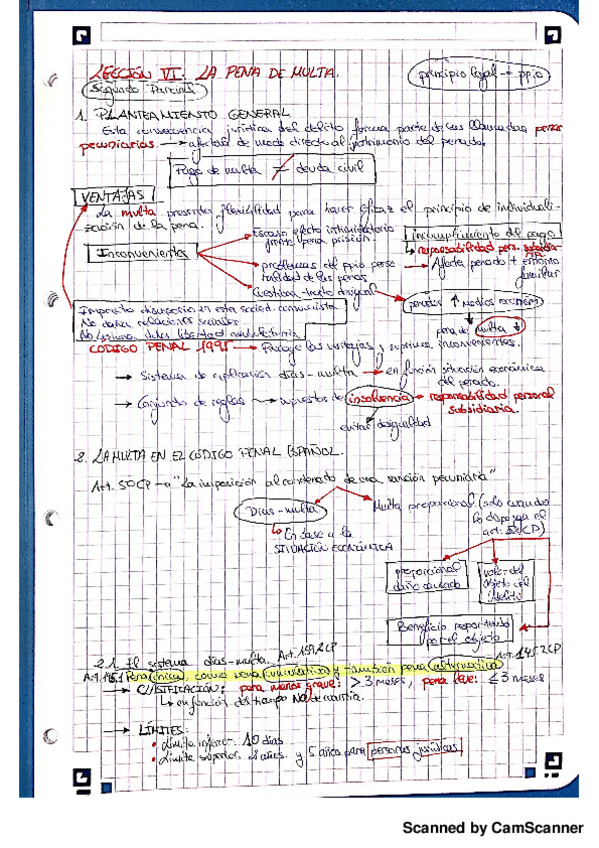 LECCIÓN VI: LA PENA DE MULTA.
principio legal → ppio
Segundo Parcial
1. PLANTEAMIENTO GENERAL
Esta consecuencia jurídica del delito forma parte de las llamadas penas
pecuniarias → afectad de modo directo al patrimonio del penado.
Pago de multa ≠ deuda civil
VENTAJAS
La multa presenta flexibilidad para hacer eficaz el principio de individuali-
zación de la pena.
Escaso efecto intimidatorio
frente pena prisión.
incumplimiento del pago
Inconvenientes
responsabilidad pers. subsidia
RIA
problemas del ppio perso
nalidad de las penas
Afecta penado + entorno
familiar
Cuestiona - trato desigual
penados ↑ medios económ
Impacto disuasorio en esta sociedad consumista
No daña relaciones sociales
pena de multa ↓
CODIGO PENAL 1995 → Recoge las ventajas y suprime inconvenientes.
→ Sistema de aplicación días-multa → en función situación económica
del penado.
→ Conjunto de reglas → supuestos de insolvencia → responsabilidad personal
subsidiaria.
evitar desigualdad
2. LA MULTA EN EL CÓDIGO PENAL ESPAÑOL.
Art. 50 CP → "La imposición al condenado de una sanción pecuniaria"
Días-multa
Multa proporcional (solo cuando
lo disponga el
art. 52 CP)
En base a la
SITUACIÓN ECONÓMICA
proporcional
daño causado
valor del
objeto del
delito
Beneficio reportado
por el objeto
2.1. El sistema días-multa.
Pena única, como pena cumulativa y también pena alternativa
→ CLASIFICACIÓN: pena menos grave: > 3 meses, pena leve: ≤ 3 meses
en función del tiempo No de cuantía.
→ LÍMITES:
• Límite inferior: 10 días
• Límite superior: 2 años y 5 años para personas jurídicas
Scanned by CamScanner